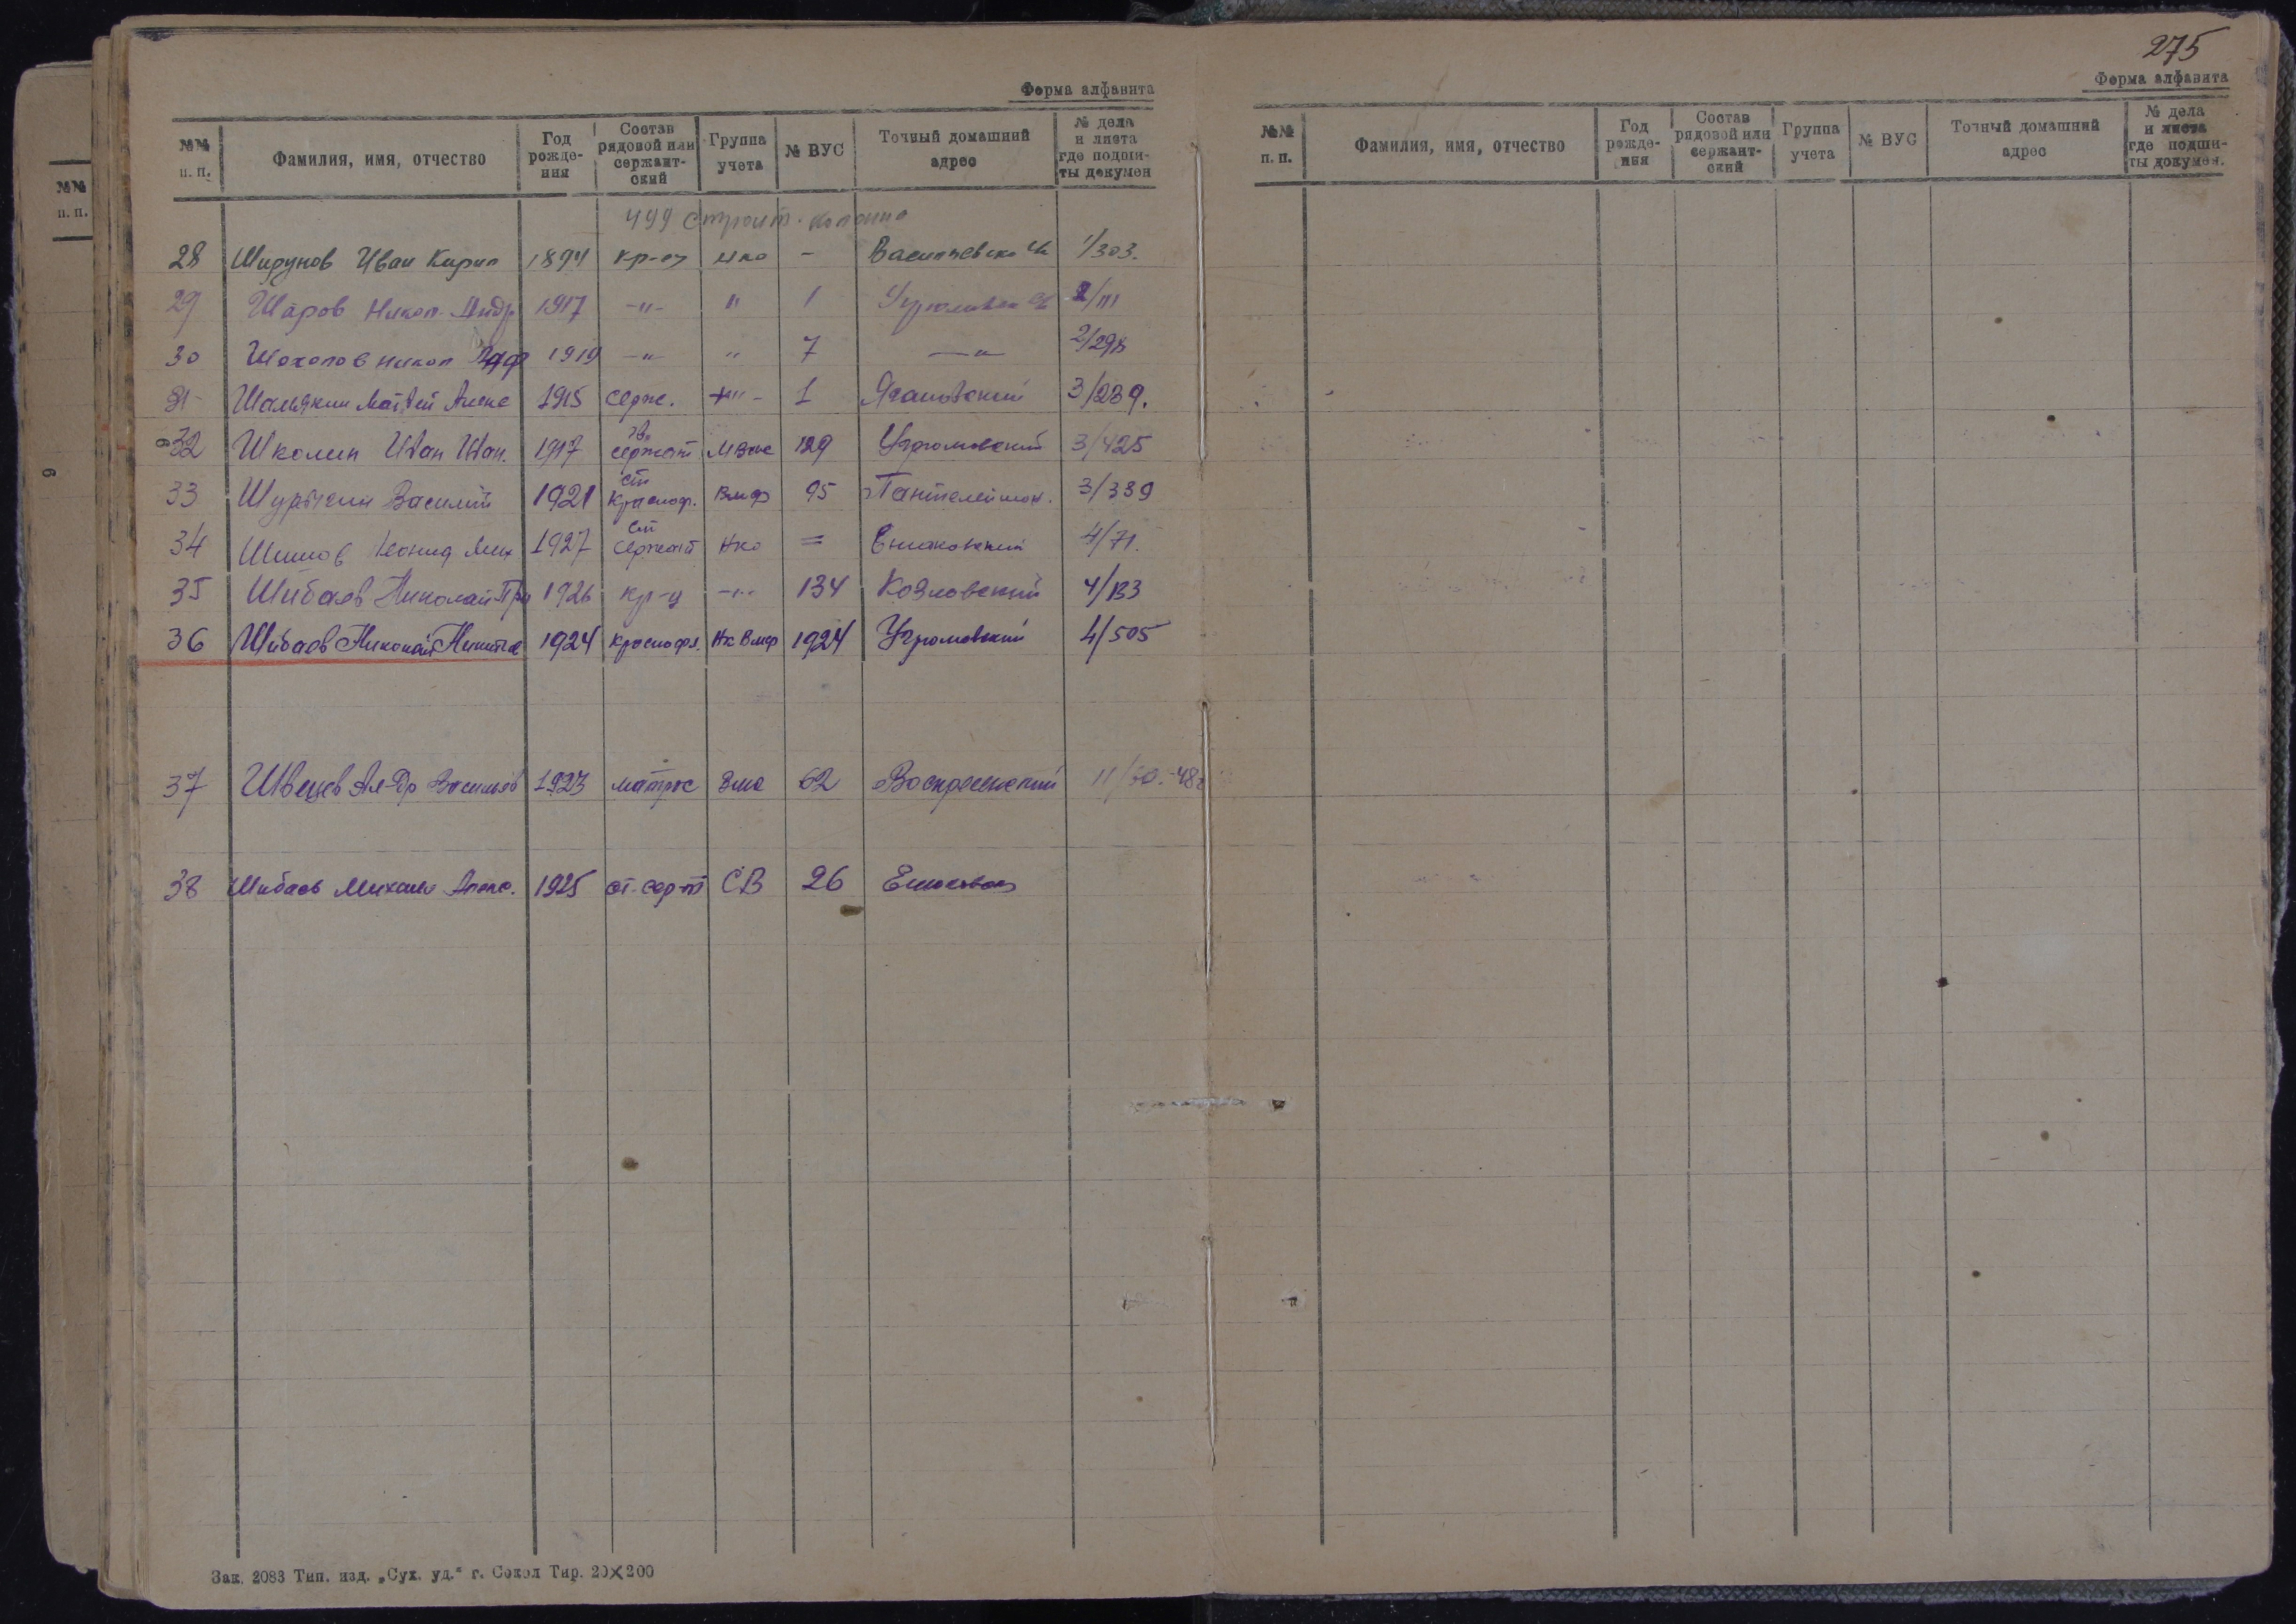 Форма алфавита
№№ п. п. | Фамилия, имя, отчество | Год рожде- ния | Состав рядовой или сержант- ский | Группа учета | № ВУС | Точный домашний адрес | № дела и листа где подши- ты докумен
499 строит. колонна
28 Ширунов Иван Кирил 1894 кр-ец нко - Васильевск 1/303.
29 Шаров Никол. Андр 1917 -"- " 1 Угрюмовск 2/111
30 Шохолов Никол 1919 -"- " 7 -"- 2/298
31 Матвей Алекс 1915 серж. -"- 1 3/239.
32 Школин Иван Иван. 1917 сержант 129 Угрюмовский 3/425
33 Василий 1921 ст краснофл. Вмф 95 Пантелеймон. 3/339
34 Шишов Леонид Мих 1927 ст сержант Нко = Ешаковский 4/71.
35 Шибаев Николай 1926 кр-ц -"- 134 Козловский 4/133
36 Шибаев Николай Никитов 1924 краснофл. Нк Вмф 1924 Угрюмовский 4/505
37 Швецов Ал-др Васильев 1923 матрос 62 Воскресенский 11/50.-48г
38 Шибаев Михаил Алекс. 1925 ст. сер-т СВ 26
Зак. 2083 Тип. изд. „Сух. уд.“ г. Сокол Тир. 20×200
№№
п. п.
6
275
Форма алфавита
№№ п. п. | Фамилия, имя, отчество | Год рожде- ния | Состав рядовой или сержант- ский | Группа учета | № ВУС | Точный домашний адрес | № дела и листа где подши- ты докумен.